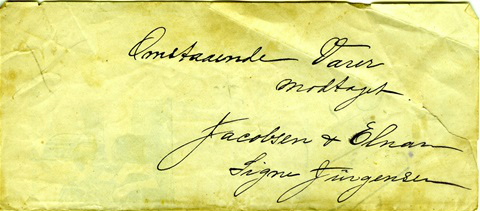 Omstaaende Varer
modtaget
Jacobsen & Elnan
Signe Jürgensen